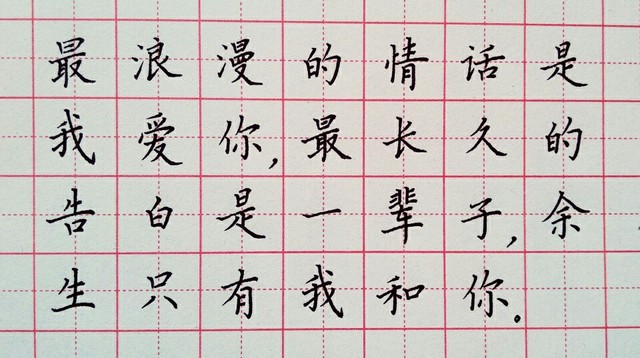 最浪漫的情话是
我爱你,最长久的
告白是一辈子,余
生只有我和你。